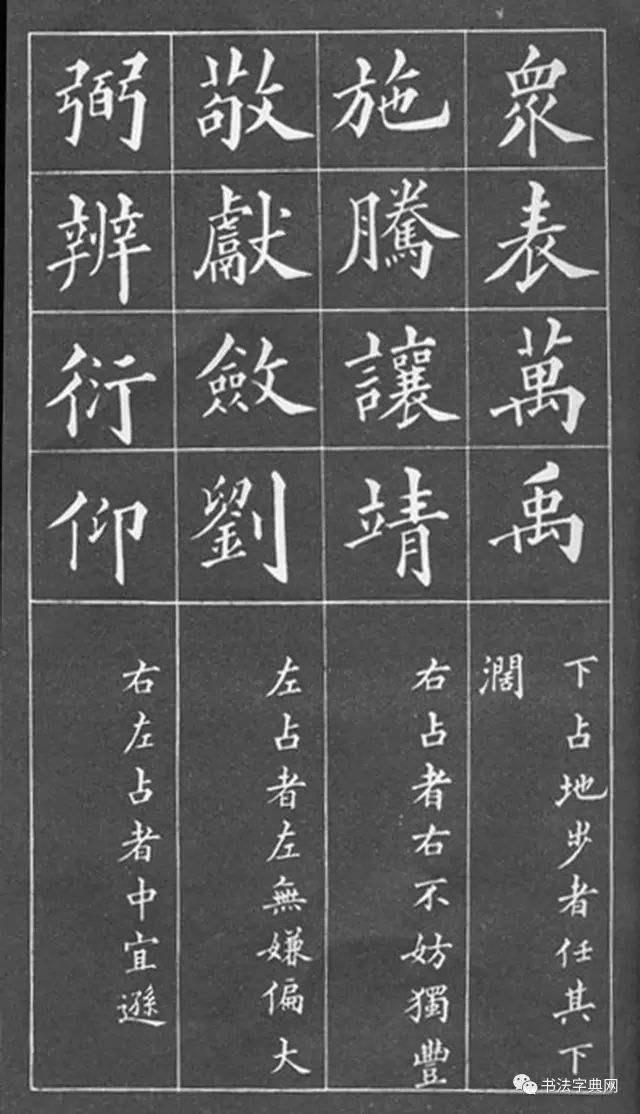 衆表萬禹
下占地步者任其下
濶
施騰讓靖
右占者右不妨獨豐
敬獻斂劉
左占者左無嫌偏大
弼辨衍仰
右左占者中宜遜
书法字典网